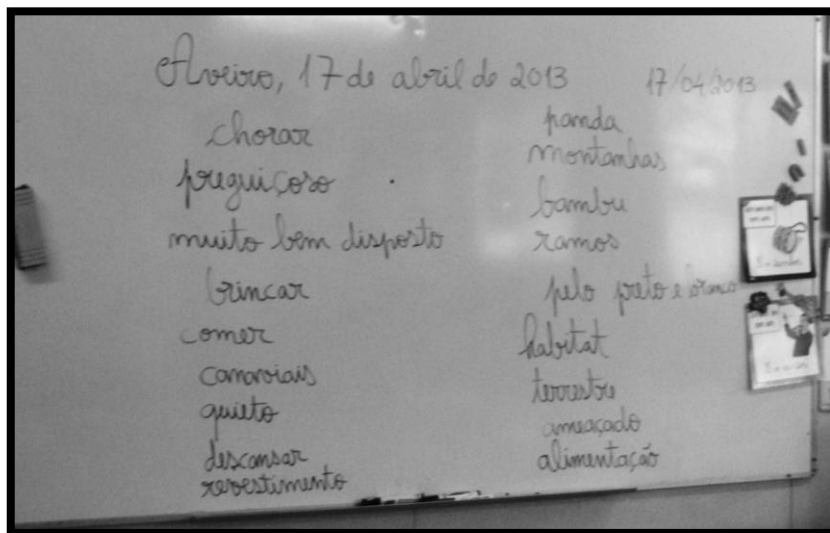 Aveiro, 17 de abril de 2013 17/04/2013
chorar
preguiçoso
muito bem disposto
brincar
comer
canaviais
quieto
descansar
revestimento
panda
montanhas
bambu
ramos
pelo preto e branco
habitat
terrestre
ameaçado
alimentação